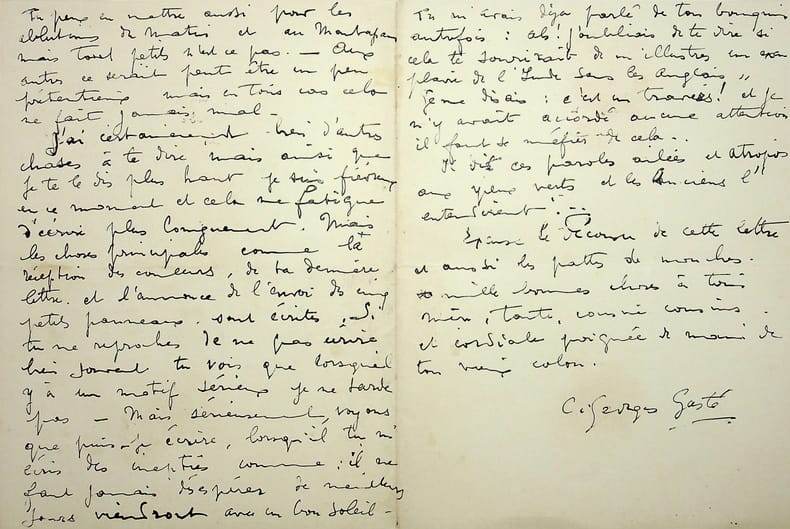 Tu peux en mettre aussi pour les
ablutions de Matis et au Montafan
mais tout petits n'est ce pas. — Aux
autres ce serait peut être un peu
prétentieux mais en tous cas cela
ne fait jamais mal —
J'ai certainement bien d'autres
choses à te dire, mais ainsi que
je te le dis plus haut je suis fiévreux
en ce moment et cela me fatigue
d'écrire plus longuement. Mais
les choses principales comme la
réception des couleurs, de ta dernière
lettre et l'annonce de l'envoi des cinq
petits panneaux sont écrites. Si
tu me reproches de ne pas écrire
bien souvent tu vois que lorsqu'il
y a un motif sérieux je ne tarde
pas — Mais sérieusement, voyons
que puis-je écrire, lorsqu'il tu m'
écris des inepties comme : il ne
faut jamais désespérer de meilleurs
jours viendront avec un bon soleil —
Tu m'avais déjà parlé de ton bouquin
autrefois : ah! j'oubliais de te dire si
cela te sourirait de m'illustrer un exem
plaire de l'Inde sans les Anglais "
Je me disais : c'est un travers! et je
n'y avait accordé aucune attention
il faut se méfier de cela..
Je dis ces paroles ailées et Atropos
aux yeux verts et les Anciens l'
entendirent!...
Excuse le décousu de cette lettre
et aussi les pattes de mouches.
mille bonnes choses à tous
mère, tante, cousine cousins
et cordiale poignée de main de
ton vieux colon.
C. Georges Gasté